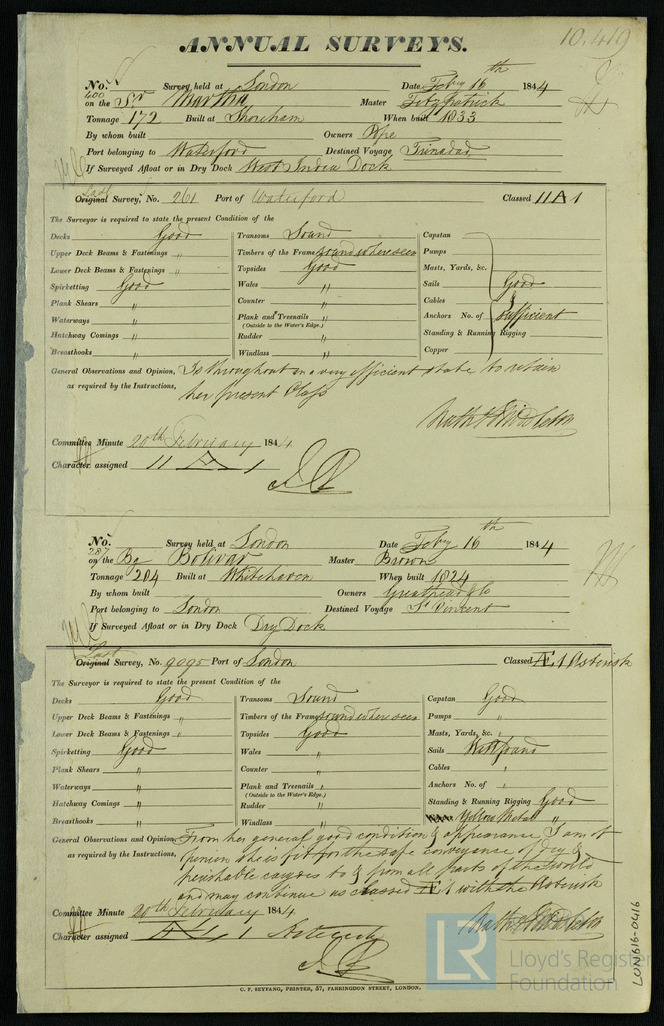 10,419
ANNUAL SURVEYS.
No. Survey held at London Date Feby 16th 1844
400 on the Sr Martha Master Fitzpatrick
Tonnage 172 Built at Shoreham When built 1833
By whom built Owners Pope
Port belonging to Waterford Destined Voyage Trinadad
If Surveyed Afloat or in Dry Dock West India Dock
Last
Original Survey, No. 261 Port of Waterford Classed 11 A 1
The Surveyor is required to state the present Condition of the
Decks Good Transoms Sound Capstan
Upper Deck Beams & Fastenings " Timbers of the Frame sound where seen Pumps
Lower Deck Beams & Fastenings " Topsides Good Masts, Yards, &c.
Spirketting Good Wales " Sails Good
Plank Shears " Counter " Cables &
Waterways " Plank and Treenails " Anchors No. of Sufficient
(Outside to the Water's Edge.)
Hatchway Comings " Rudder " Standing & Running Rigging
Breasthooks " Windlass " Copper
General Observations and Opinion, Is throughout in a very efficient state to retain
as required by the Instructions, her present Class
Nath Middleton
Committee Minute 20th February 1844
Character assigned 11 A 1
No. Survey held at London Date Feby 16th 1844
287 on the Bg Bolivar Master Brown
Tonnage 204 Built at Whitehaven When built 1824
By whom built Owners Greathead & Co
Port belonging to London Destined Voyage St Vincent
If Surveyed Afloat or in Dry Dock Dry Dock
Last
Original Survey, No. 9095 Port of London Classed Æ 1 Asterisk
The Surveyor is required to state the present Condition of the
Decks Good Transoms Sound Capstan Good
Upper Deck Beams & Fastenings " Timbers of the Frame sound where seen Pumps "
Lower Deck Beams & Fastenings " Topsides Good Masts, Yards, &c. "
Spirketting Good Wales " Sails Well found
Plank Shears " Counter " Cables "
Waterways " Plank and Treenails " Anchors No. of "
(Outside to the Water's Edge.)
Hatchway Comings " Rudder " Standing & Running Rigging Good
Breasthooks " Windlass " Yellow Metal "
General Observations and Opinion, From her general good condition & appearance I am of
as required by the Instructions, opinion she is fit for the safe conveyance of dry &
perishable cargoes to & from all parts of the world
and may continue as classed Æ 1 with the Asterisk
Committee Minute 20th February 1844
Nath Middleton
Character assigned Æ 1 Asterisk
C. F. SEYFANG, PRINTER, 57, FARRINGDON STREET, LONDON.
LR
Lloyd's Register
Foundation
LON616-0416